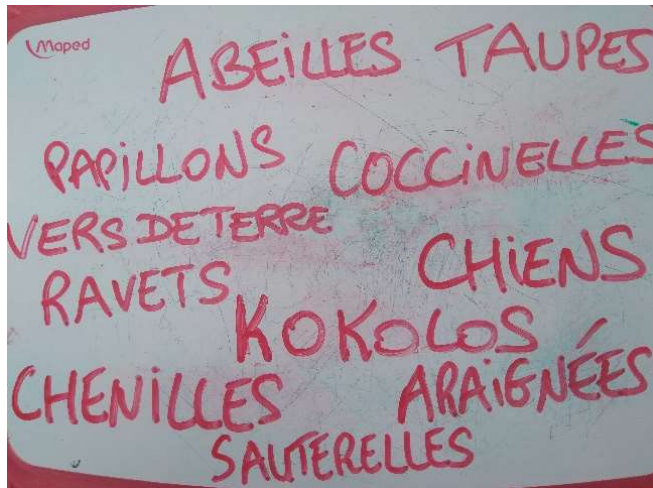 Maped
ABEILLES TAUPES
PAPILLONS COCCINELLES
VERS DE TERRE
CHIENS
RAVETS
KOKOLOS
CHENILLES ARAIGNÉES
SAUTERELLES